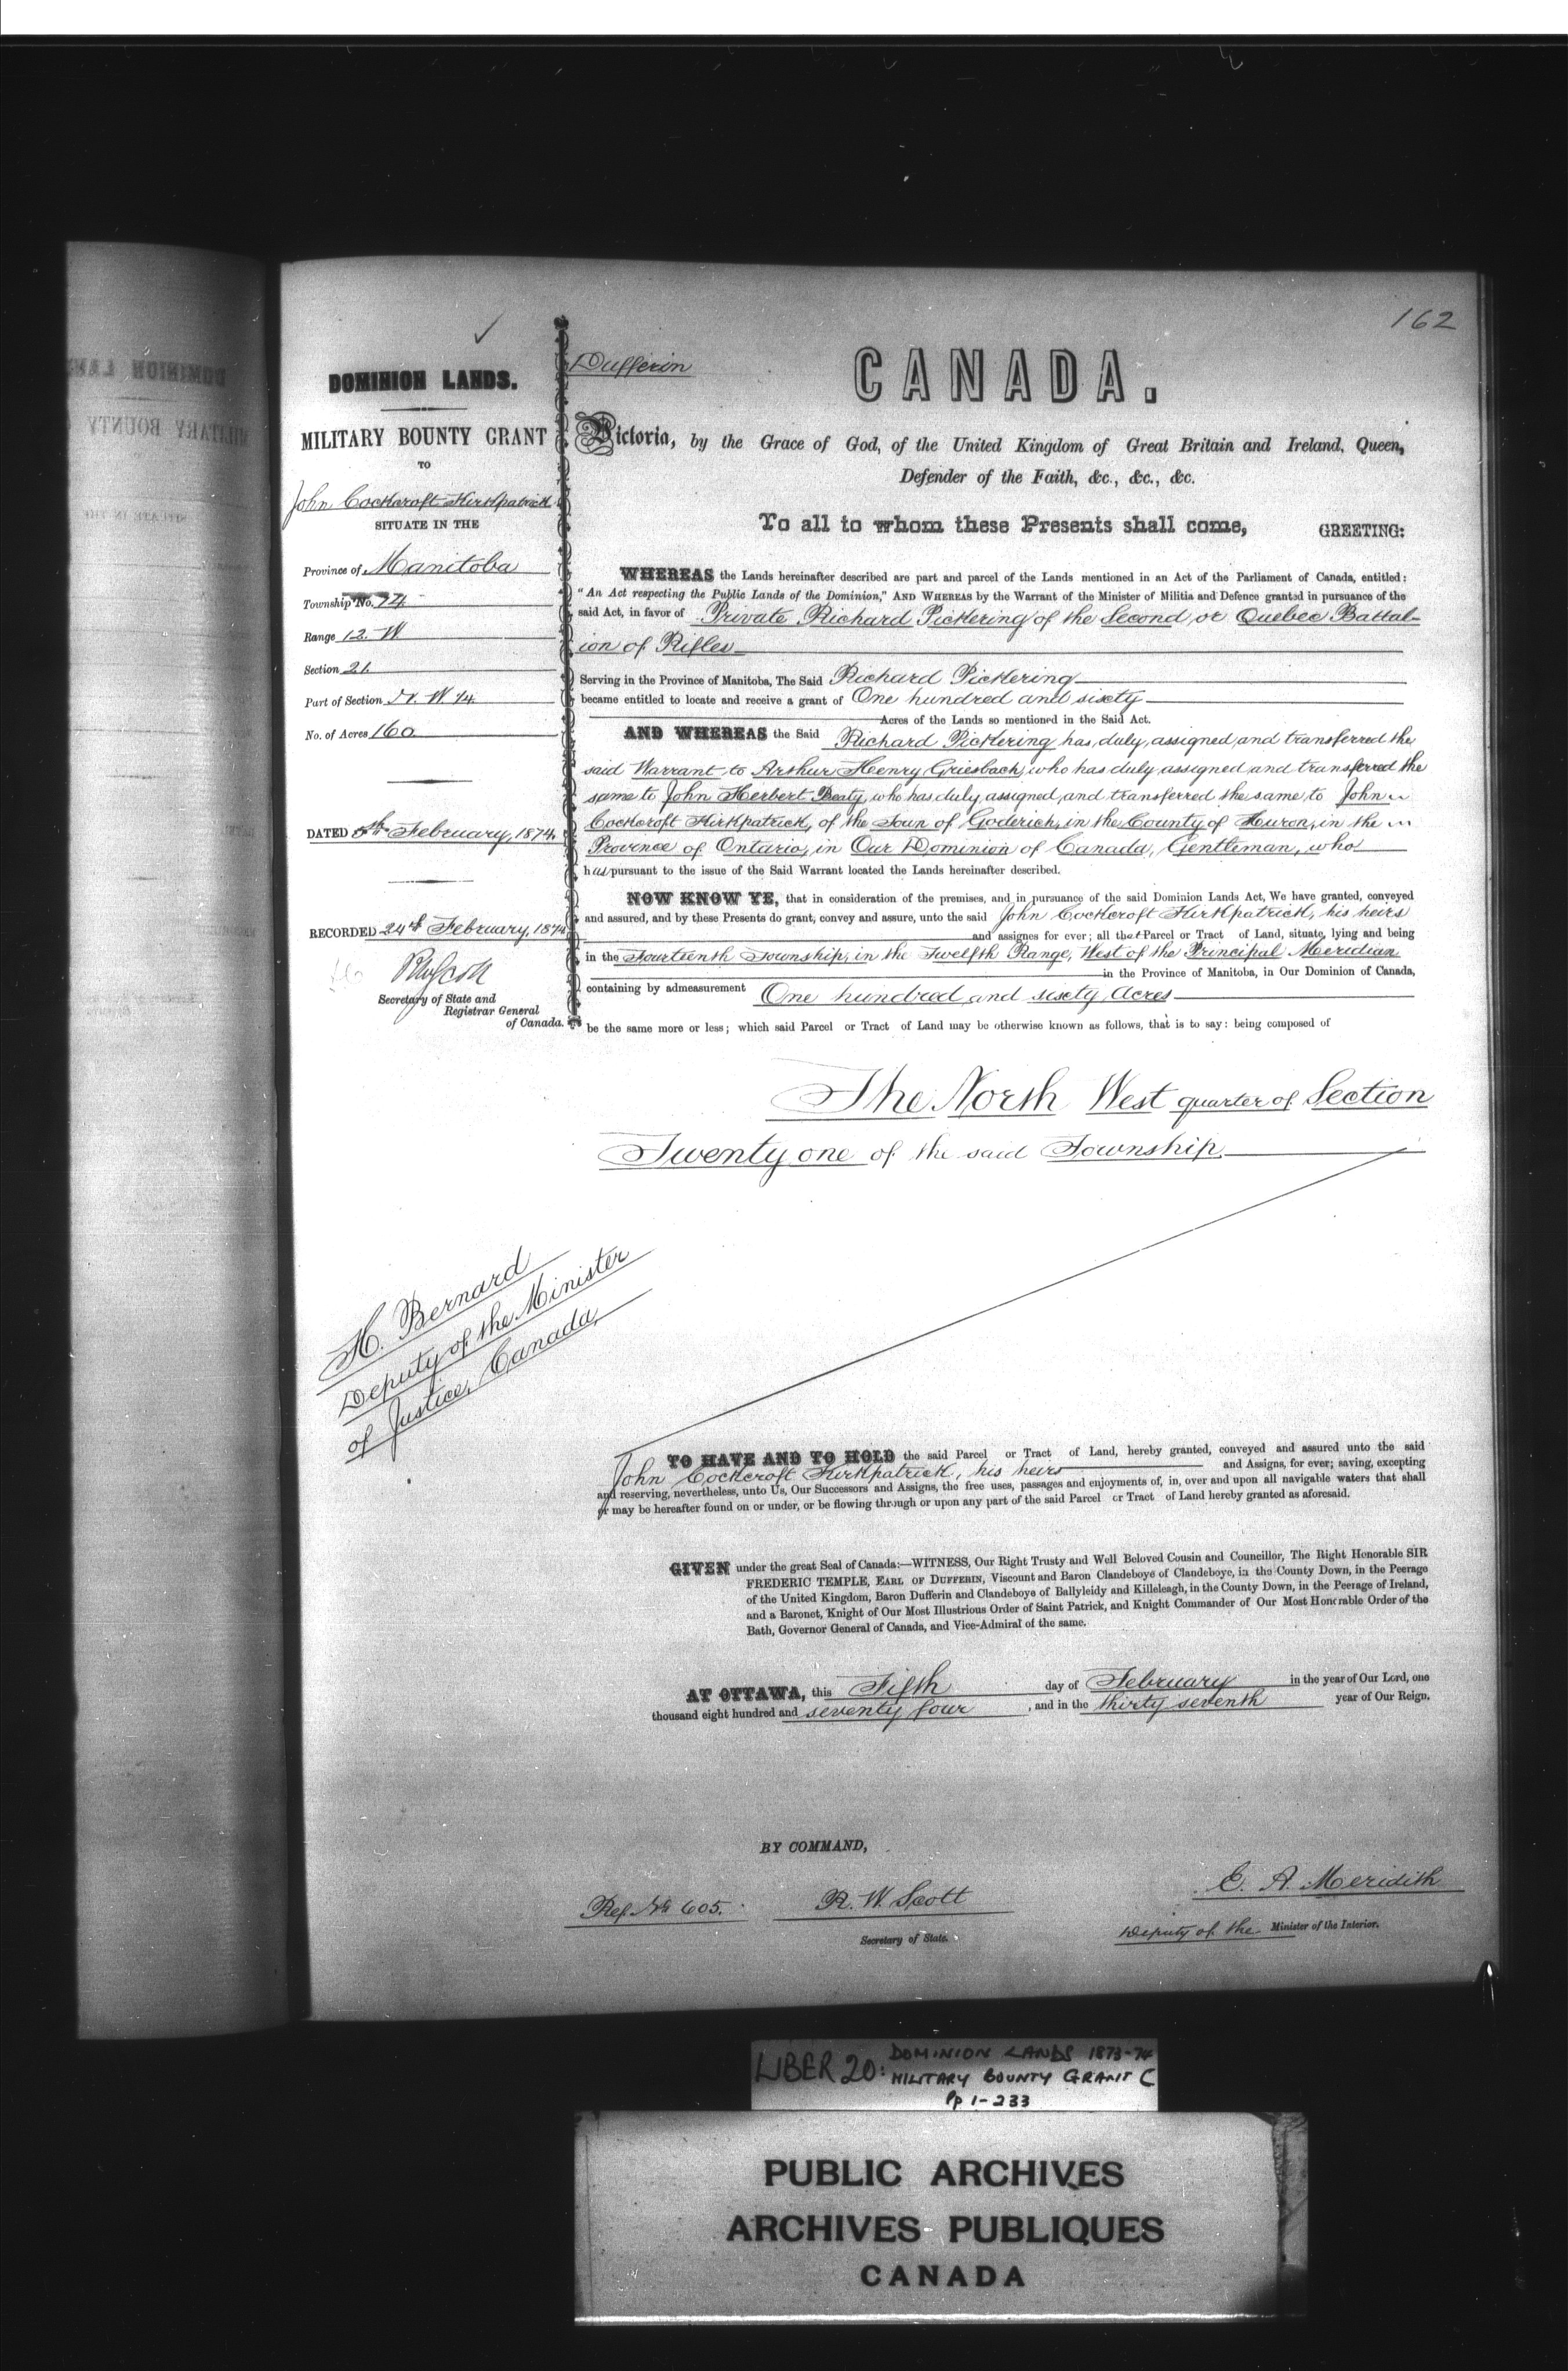 162
DOMINION LANDS.
MILITARY BOUNTY GRANT
TO
John Cockcroft Kirkpatrick
SITUATE IN THE
Province of Manitoba
Township No. 14
Range 12. W
Section 21.
Part of Section N. W. 1/4
No. of Acres 160
DATED 5th February, 1874.
RECORDED 24th February, 1874
RWScott
Secretary of State and
Registrar General
of Canada.
Dufferin
CANADA.
Victoria, by the Grace of God, of the United Kingdom of Great Britain and Ireland, Queen,
Defender of the Faith, &c., &c., &c.
To all to whom these Presents shall come, GREETING:
WHEREAS the Lands hereinafter described are part and parcel of the Lands mentioned in an Act of the Parliament of Canada, entitled:
"An Act respecting the Public Lands of the Dominion," AND WHEREAS by the Warrant of the Minister of Militia and Defence granted in pursuance of the
said Act, in favor of Private Richard Pickering of the Second or Quebec Battal-
ion of Rifles
Serving in the Province of Manitoba, The Said Richard Pickering
became entitled to locate and receive a grant of One hundred and sixty
Acres of the Lands so mentioned in the Said Act.
AND WHEREAS the Said Richard Pickering has, duly, assigned, and transferred the
said Warrant, to Arthur Henry Griesbach, who has duly assigned and transferred the
same to John Herbert Beaty, who has duly, assigned, and transferred the same, to John
Cockcroft Kirkpatrick, of the Town of Goderich, in the County of Huron, in the
Province of Ontario, in Our Dominion of Canada, Gentleman, who
has pursuant to the issue of the Said Warrant located the Lands hereinafter described.
NOW KNOW YE, that in consideration of the premises, and in pursuance of the said Dominion Lands Act, We have granted, conveyed
and assured, and by these Presents do grant, convey and assure, unto the said John Cockcroft Kirkpatrick, his heirs
and assignes for ever; all that Parcel or Tract of Land, situate, lying and being
in the Fourteenth Township, in the Twelfth Range, West of the Principal Meridian
in the Province of Manitoba, in Our Dominion of Canada,
containing by admeasurement One hundred and sixty Acres
be the same more or less; which said Parcel or Tract of Land may be otherwise known as follows, that is to say: being composed of
The North West quarter of Section
Twenty one of the said Township.
H. Bernard
Deputy of the Minister
of Justice, Canada,
TO HAVE AND TO HOLD the said Parcel or Tract of Land, hereby granted, conveyed and assured unto the said
John Cockcroft Kirkpatrick, his heirs and Assigns, for ever; saving, excepting
and reserving, nevertheless, unto Us, Our Successors and Assigns, the free uses, passages and enjoyments of, in, over and upon all navigable waters that shall
or may be hereafter found on or under, or be flowing through or upon any part of the said Parcel or Tract of Land hereby granted as aforesaid.
GIVEN under the great Seal of Canada:—WITNESS, Our Right Trusty and Well Beloved Cousin and Councillor, The Right Honorable SIR
FREDERIC TEMPLE, EARL OF DUFFERIN, Viscount and Baron Clandeboye of Clandeboye, in the County Down, in the Peerage
of the United Kingdom, Baron Dufferin and Clandeboye of Ballyleidy and Killeleagh, in the County Down, in the Peerage of Ireland,
and a Baronet, Knight of Our Most Illustrious Order of Saint Patrick, and Knight Commander of Our Most Honorable Order of the
Bath, Governor General of Canada, and Vice-Admiral of the same.
AT OTTAWA, this Fifth day of February in the year of Our Lord, one
thousand eight hundred and seventy four, and in the thirty seventh year of Our Reign.
BY COMMAND,
Ref. No 605.
R. W. Scott
Secretary of State.
E. A. Meridith
Deputy of the Minister of the Interior.
LIBER 20: DOMINION LANDS 1873-74
MILITARY BOUNTY GRANT C
Pp 1-233
PUBLIC ARCHIVES
ARCHIVES PUBLIQUES
CANADA